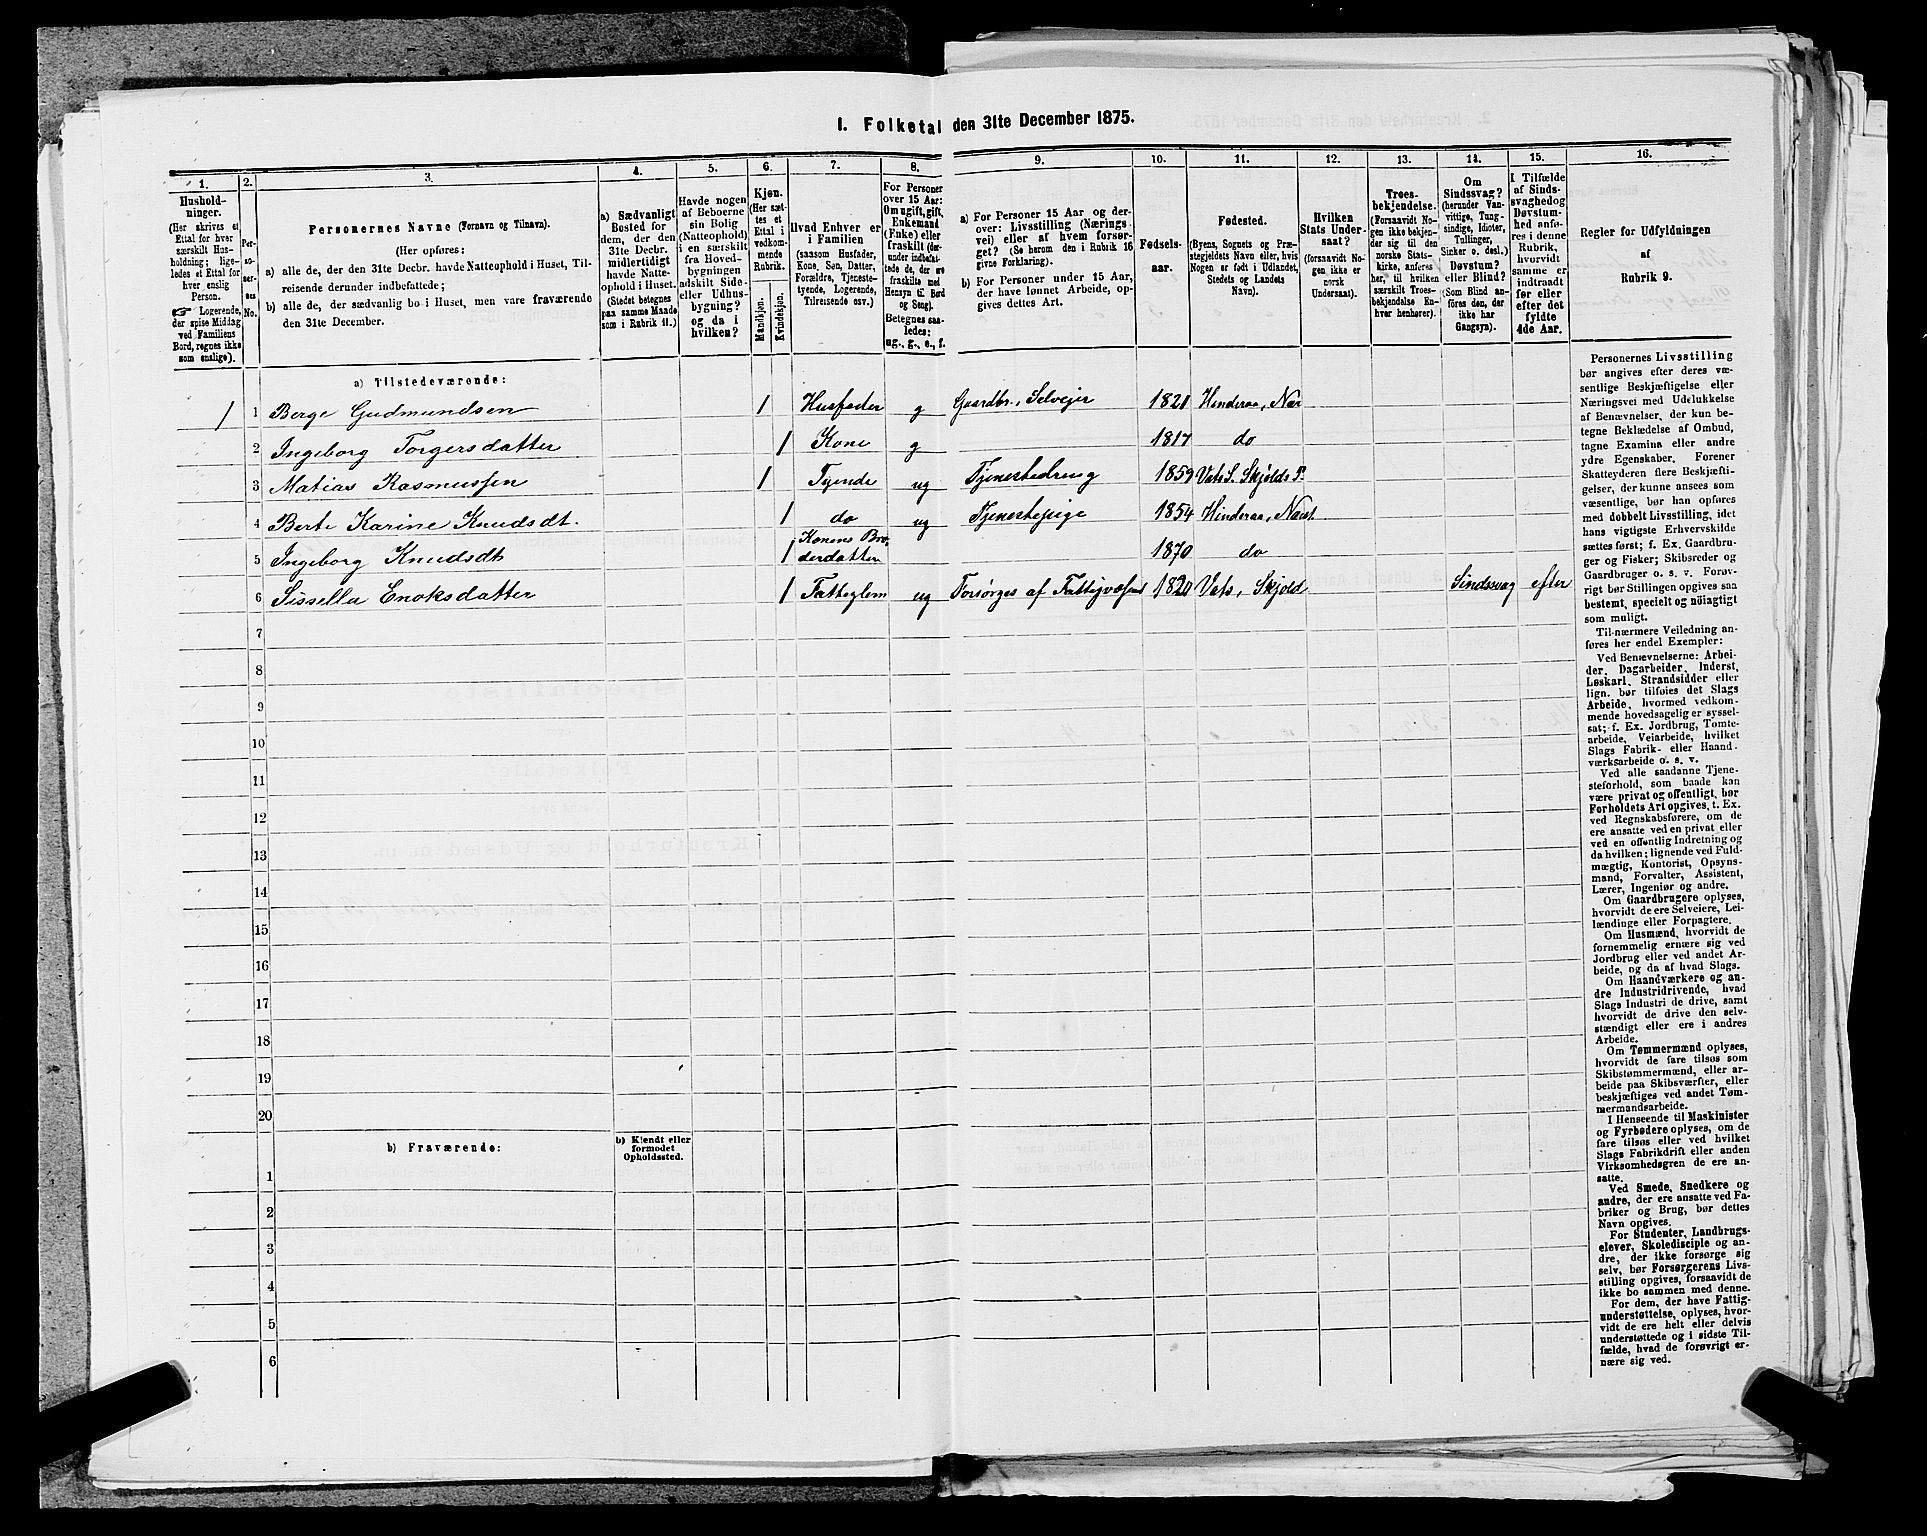 I. Folketal den 31te December 1875.
1.
Hushold-
ninger.
(Her skrives et
Ettal for hver
særskilt Hus-
holdning; lige-
ledes et Ettal for
hver enslig
Person.
☞ Logerende,
der spise Middag
ved Familiens
Bord, regnes ikke
som enslige).
2.
Per-
so-
ner-
nes
No.
3.
Personernes Navne (Fornavn og Tilnavn).
(Her opføres:
a) alle de, der den 31te Decbr. havde Natteophold i Huset, Til-
reisende derunder indbefattede;
b) alle de, der sædvanlig bo i Huset, men vare fraværende
den 31te December.
4.
a) Sædvanligt
Bosted for
dem, der den
31te Decbr.
midlertidigt
havde Natte-
ophold i Huset.
(Stedet betegnes
paa samme Maade
som i Rubrik 11.)
5.
Havde nogen
af Beboerne
sin Bolig
(Natteophold)
i en særskilt
fra Hoved-
bygningen
adskilt Side-
eller Udhus-
bygning?
og da i
hvilken?
6.
Kjøn.
(Her sæt-
tes et
Ettal i
vedkom-
mende
Rubrik.
Mandkjøn.
Kvindekjøn.
7.
Hvad Enhver er
i Familien
(saasom Husfader,
Kone, Søn, Datter,
Forældre, Tjeneste-
tyende, Logerende,
Tilreisende osv.)
8.
For Personer
over 15 Aar:
Om ugift, gift,
Enkemand
(Enke) eller
fraskilt (der-
under indbefat-
tede de, der ere
fraskilte med
Hensyn til Bord
og Seng).
Betegnes saa-
ledes:
ug., g., e., f.
9.
a) For Personer 15 Aar og der-
over: Livsstilling (Nærings
vei) eller af hvem forsør-
get? (Se herom den i Rubrik 16
givne Forklaring).
b) For Personer under 15 Aar,
der have lønnet Arbeide, op-
gives dettes Art.
10.
Fødsels-
aar.
11.
Fødested.
(Byens, Sognets og Præ-
stegjeldets Navn eller, hvis
Nogen er født i Udlandet,
Stedets og Landets
Navn).
12.
Hvilken
Stats Under-
saat?
(forsaavidt No-
gen ikke er
norsk
Undersaat).
13.
Troes-
bekjendelse.
(Forsaavidt No-
gen ikke bekjen-
der sig til den
norske Stats-
kirke, anføres
her, til hvilken
særskilt Troes-
bekjendelse En-
hver henhører).
14.
Om
Sindssvag?
(herunder Van-
vittige, Tung-
sindige, Idioter,
Tullinger,
Sinker o. desl.).
Døvstum?
eller Blind?
(Som Blind an-
føres den, der
ikke har
Gangsyn).
15.
I Tilfælde
af Sinds-
svaghedog
Døvstum-
hed anfø-
res i denne
Rubrik,
hvorvidt
samme er
indtraadt
før eller
efter det
fyldte
4de Aar.
16.
Regler for Udfyldningen
af
Rubrik 9.
a) Tilstedeværende:
1 1 Berge Gudmundsen 1 Husfader g Gaardbr., Selveier 1821 Hinderaa, Næ
2 Ingeborg Torgersdatter 1 Kone g 1817 do
3 Matias Rasmussen 1 Tyende ug Tjenestedreng 1859 Vats S. Skjolds P.
4 Berte Karine Knudsdt. 1 do ug Tjenestepige 1854 Hinderaa, Næst
5 Ingeborg Knudsdt 1 Konens Bro-
derdatter 1870 do
6 Sissella Enoksdatter 1 Fatteglem ug Forsørges af Fattigvæsnet 1820 Vats, Skjold Sindssvag efter
7
8
9
10
11
12
13
14
15
16
17
18
19
20
b) Fraværende:
b) Kjendt eller
formodet
Opholdssted.
1
2
3
4
5
6
Personernes Livsstilling
bør angives efter deres væ-
sentlige Beskjæftigelse eller
Næringsvei med Udelukkelse
af Benævnelser, der kun be-
tegne Beklædelse af Ombud,
tagne Examina eller andre
ydre Egenskaber. Forener
Skatteyderen flere Beskjæfti-
gelser, der kunne ansees som
væsentlige, bør han opføres
med dobbelt Livsstilling, idet
hans vigtigste Erhvervskilde
sættes først; f. Ex. Gaardbru-
ger og Fisker; Skibsreder og
Gaardbruger o. s. v. Forøv-
rigt bør Stillingen opgives saa
bestemt, specielt og nöiagtigt
som muligt.
Til nærmere Veiledning an-
føres her endel Exempler:
Ved Benævnelserne: Arbei-
der, Dagarbeider, Inderst,
Løskarl, Strandsidder eller
lign. bør tilføies det Slags
Arbeide, hvormed vedkom-
mende hovedsagelig er syssel-
sat; f. Ex. Jordbrug, Tømte-
arbeide, Veiarbeide, hvilket
Slags Fabrik- eller Haand-
værksarbeide o. s. v.
Ved alle saadanne Tjene-
steforhold, som baade kan
være privat og offentligt, bør
Forholdets Art opgives, t. Ex.
ved Regnskabsførere, om de
ere ansatte ved en privat eller
ved en offentlig Indretning og
da hvilken; lignende ved Fuld-
mægtig, Kontorist, Opsyns-
mand, Forvalter, Assistent,
Lærer, Ingeniør og andre.
Om Gaardbrugere oplyses,
hvorvidt de ere Selveiere, Lei-
lændinge eller Forpagtere.
Om Husmænd, hvorvidt de
fornemmelig ernære sig ved
Jordbrug eller ved andet Ar-
beide, og da af hvad Slags.
Om Haandværkere og an-
dre Industridrivende, hvad
Slags Industri de drive, samt
hvorvidt de drive den selv-
stændigt eller ere i andres
Arbeide.
Om Tømmermænd oplyses,
hvorvidt de fare tilsøs som
Skibstømmermænd, eller ar-
beide paa Skibsværfter, eller
beskjæftiges ved andet Tøm-
mermandsarbeide.
I Henseende til Maskinister
og Fyrbødere oplyses, om de
fare tilsøs eller ved hvilket
Slags Fabrikdrift eller anden
Virksomhedsgren de ere an-
satte.
Ved Smede, Snedkere og
andre, der ere ansatte ved Fa-
briker og Brug, bør dettes
Navn opgives.
For Studenter, Landbrugs-
elever, Skoledisciple og an-
dre, der ikke forsørge sig
selv, bør Forsørgerens Livs-
stilling opgives, forsaavidt de
ikke bo sammen med denne.
For dem, der have Fattig-
understøttelse, oplyses, hvor-
vidt de ere helt eller delvis
understøttede og i sidste Til-
fælde, hvad de forøvrigt er-
nære sig ved.